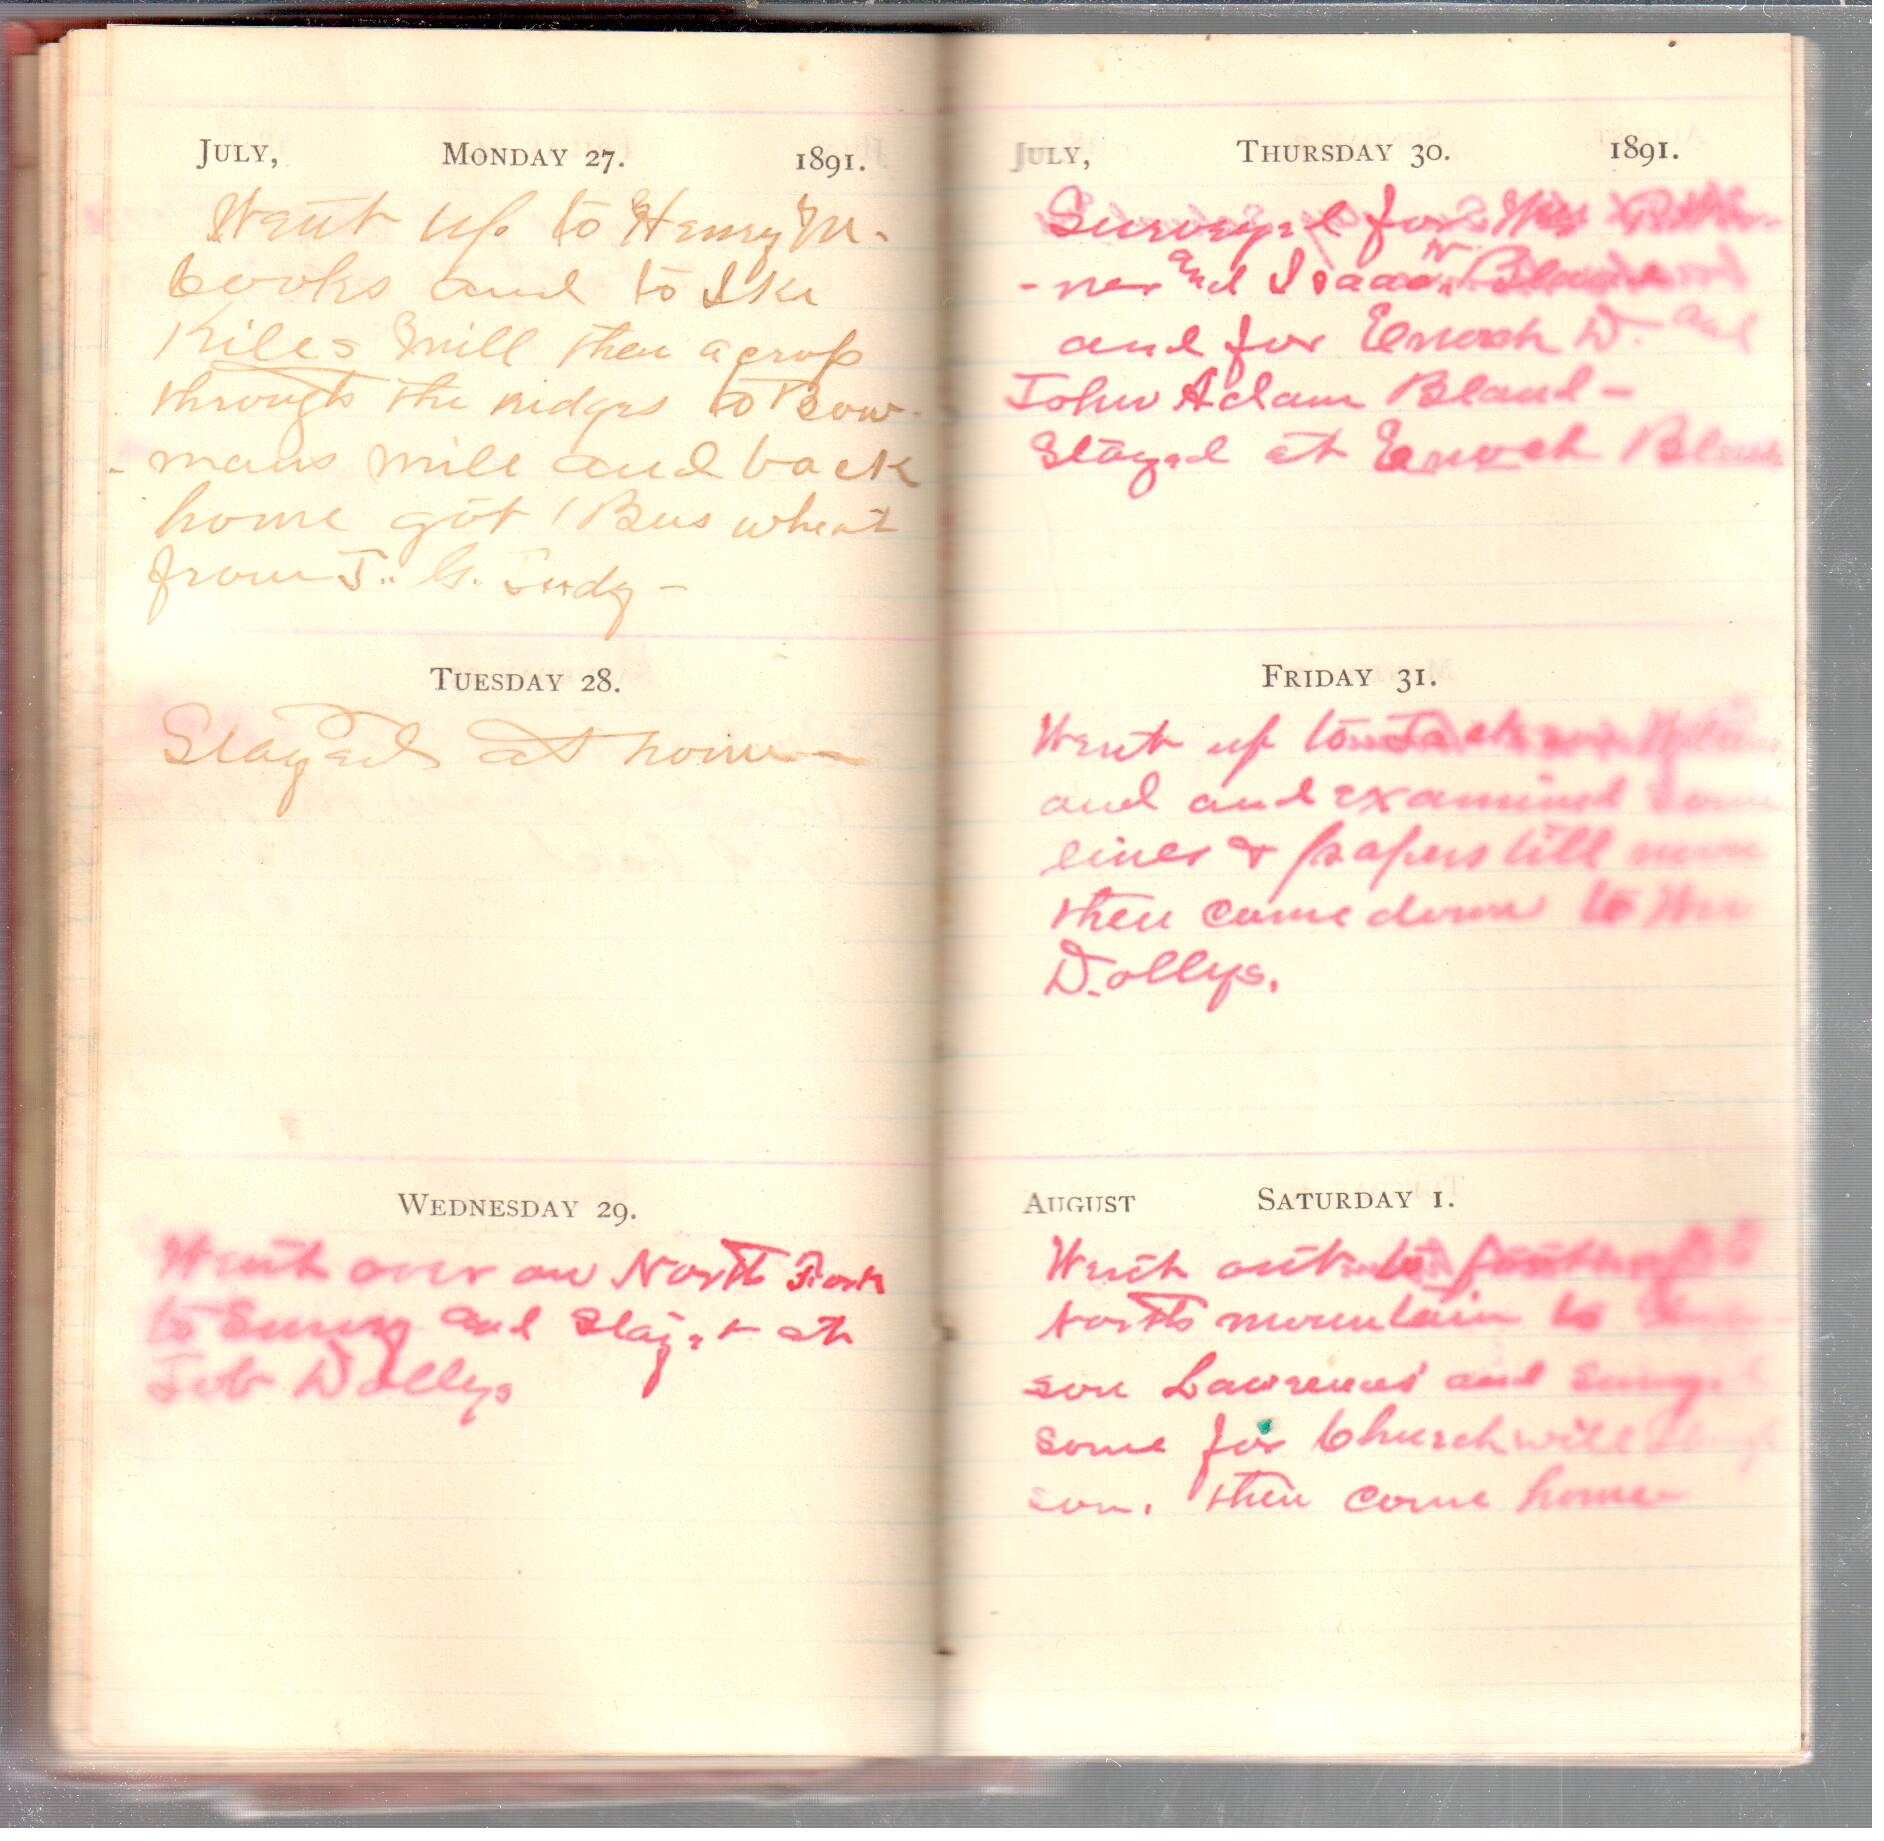 JULY, MONDAY 27. 1891.
Went up to Henry M.
Cooks and to Ike
Kiles mill then acrost
through the ridges to Bow-
-mans mill and back
home got 1 Bus wheat
from J. G. Judy -
TUESDAY 28.
Stayed at home -
WEDNESDAY 29.
Went over on North Fork
to Survey and Stayed at
Job Dollys
JULY, THURSDAY 30. 1891.
Surveyed for Wm
-ner and Isaac N Bland
and for Enoch D. and
John Adam Bland -
Stayed at Enoch Blands
FRIDAY 31.
Went up to Jackson
and and examined some
lines & papers till noon
then come down to Wm
Dollys.
AUGUST SATURDAY 1.
Went out to foot of
North mountain to
son Lawrences and
some for Churchwill
son. then come home